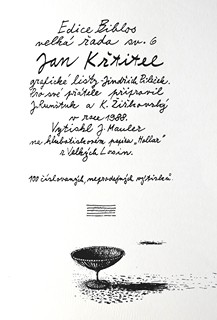 Edice Biblos
velká řada sv. 6
Jan Křtitel
grafické listy Jindřich Pileček.
Pro své přátele připravil
J. Hunituk a K. Žižkovský
v roce 1988.
Vytiskl J. Mauler
na hlubotiskovém papíře „Hollar"
z Velkých Losin.
100 číslovaných, neprodejných výtisků